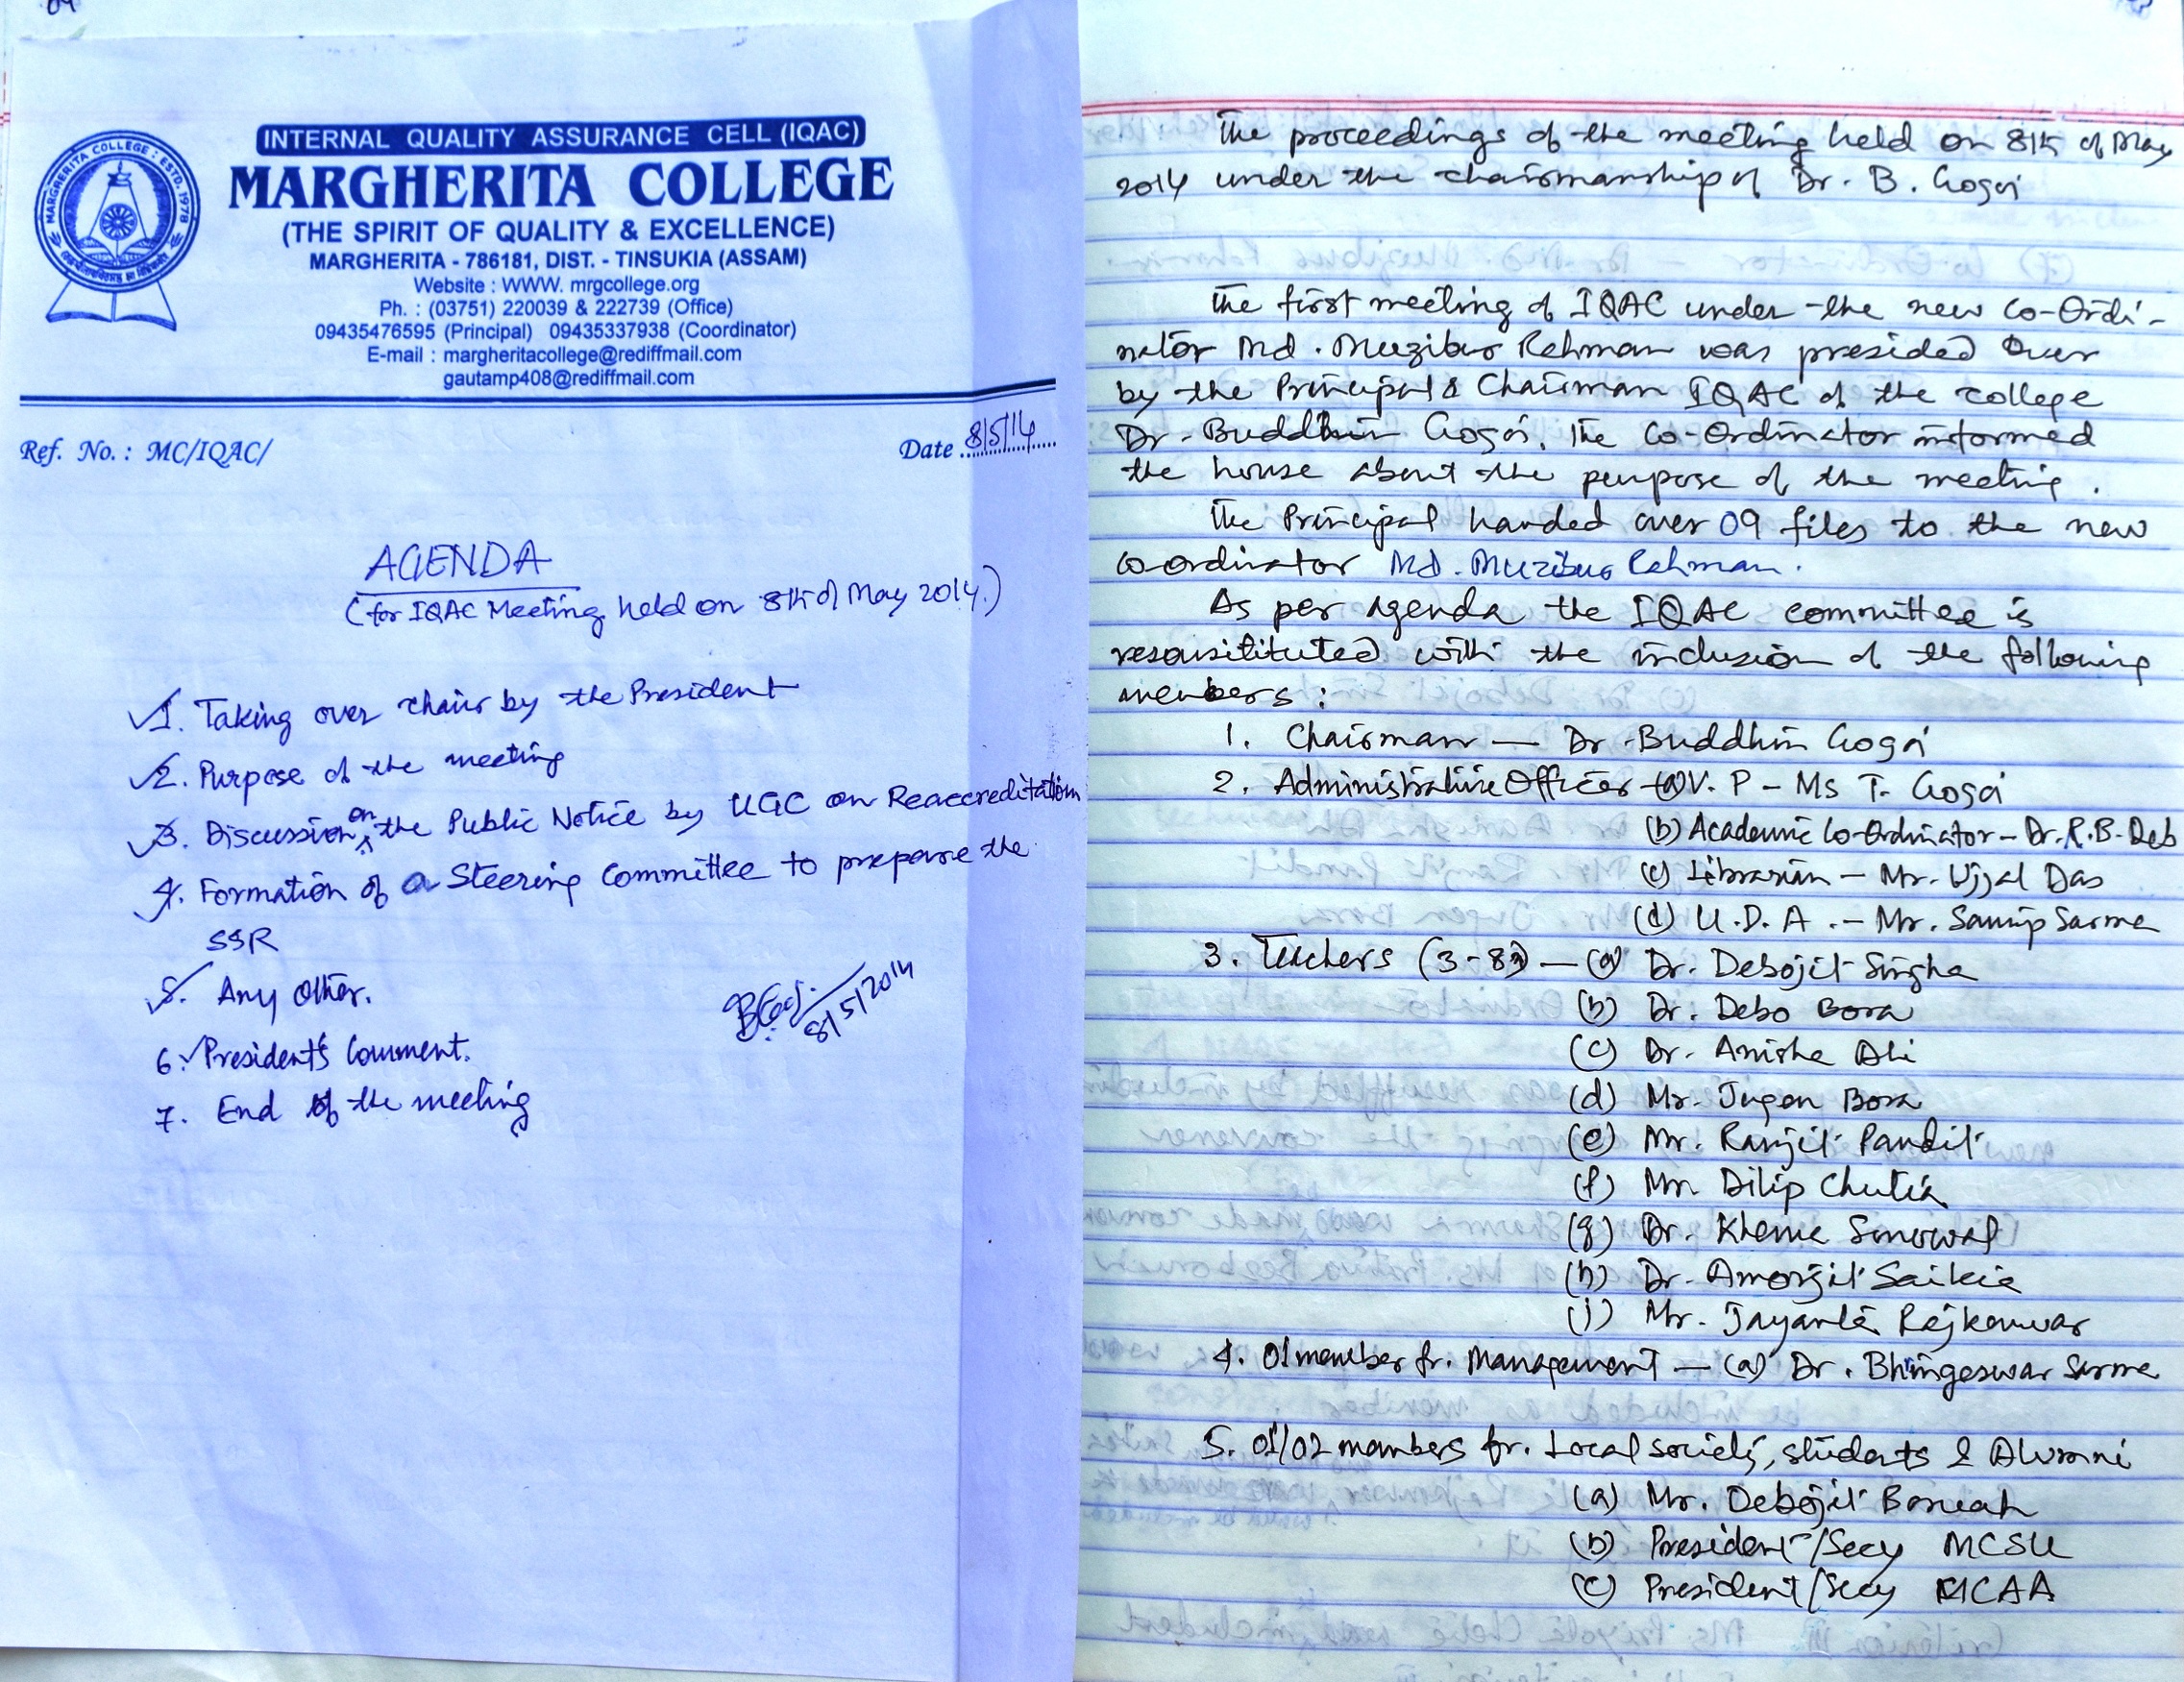 INTERNAL QUALITY ASSURANCE CELL (IQAC)
MARGHERITA COLLEGE
(THE SPIRIT OF QUALITY & EXCELLENCE)
MARGHERITA - 786181, DIST. - TINSUKIA (ASSAM)
Website : WWW. mrgcollege.org
Ph. : (03751) 220039 & 222739 (Office)
09435476595 (Principal) 09435337938 (Coordinator)
E-mail : margheritacollege@rediffmail.com
gautamp408@rediffmail.com
MARGHERITA COLLEGE : ESTD. 1978
Ref. No. : MC/IQAC/
Date 8/5/14
AGENDA
(for IQAC Meeting held on 8th of May 2014.)
1. Taking over chair by the President
2. Purpose of the meeting
3. Discussion on the Public Notice by UGC on Reaccreditation
4. Formation of a Steering Committee to prepare the
SSR
5. Any Other.
6. President's Comment.
7. End of the meeting
8/5/2014
The proceedings of the meeting held on 8th of May
2014 under the chairmanship of Dr. B. Gogoi
The first meeting of IQAC under the new Co-Ordi-
nator Md. Muzibur Rehman was presided Over
by the Principal & Chairman IQAC of the college
Dr. Buddhin Gogoi. The Co-Ordinator informed
the house about the purpose of the meeting.
The Principal handed over 09 files to the new
Co-ordinator Md. Muzibur Rehman.
As per agenda the IQAC committee is
resonsitituted with the inclusion of the following
members :
1. Chairman — Dr. Buddhin Gogoi
2. Administrative Officer - (a) V. P - Ms T. Gogoi
(b) Academic Co-Ordinator - Dr. R.B. Deb
(c) Librarian - Mr. Ujjal Das
(d) U.D.A. - Mr. Sanip Sarma
3. Teachers (3-8) — (a) Dr. Debojit Singha
(b) Dr. Debo Bora
(c) Dr. Anisha Ali
(d) Mr. Jugen Bora
(e) Mr. Ranjit Pandit
(f) Mr. Dilip Chutia
(g) Dr. Khema Sonowal
(h) Dr. Amorjit Saikia
(i) Mr. Jayanta Rajkonwar
4. 01 member fr. Management — (a) Dr. Bhringeswar Sarma
5. 01/02 members fr. Local society, students & Alumni
(a) Mr. Debojit Boruah
(b) President/Secy MCSU
(c) President/Secy MCAA